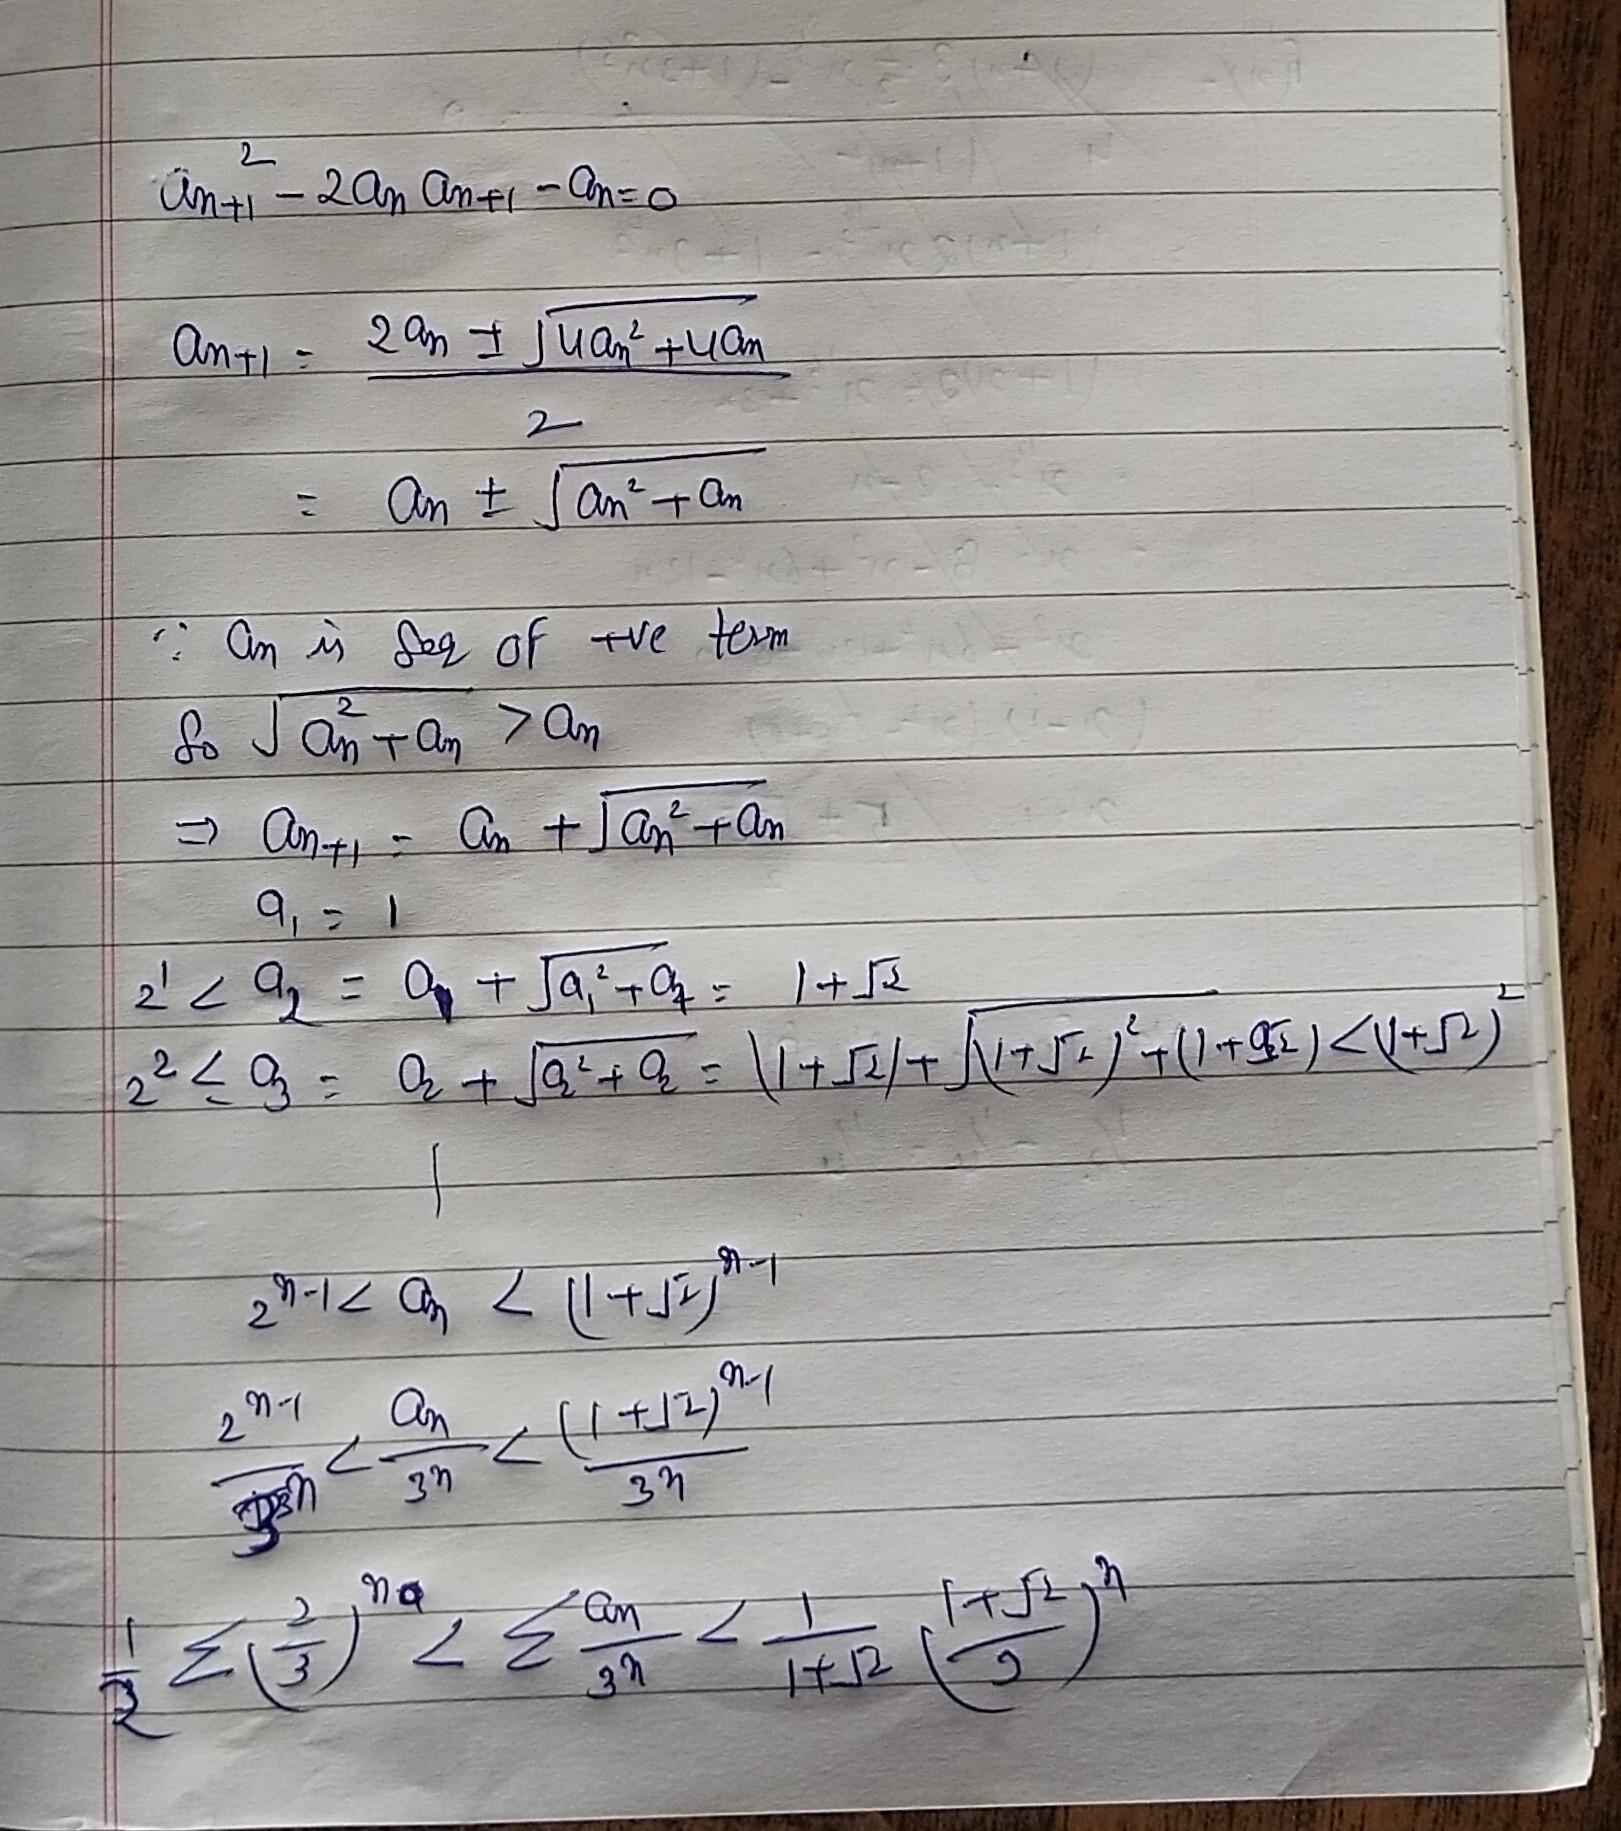 aₙ₊₁² - 2aₙ aₙ₊₁ - aₙ = 0
aₙ₊₁ = (2aₙ ± √(4aₙ² + 4aₙ)) / 2
= aₙ ± √(aₙ² + aₙ)
∵ aₙ is Seq of +ve term
So √(aₙ² + aₙ) > aₙ
⇒ aₙ₊₁ = aₙ + √(aₙ² + aₙ)
a₁ = 1
2¹ < a₂ = a₁ + √(a₁² + a₁) = 1 + √2
2² ≤ a₃ = a₂ + √(a₂² + a₂) = (1+√2) + √((1+√2)² + (1+√2)) < (1+√2)²
2ⁿ⁻¹ < aₙ < (1+√2)ⁿ⁻¹
2ⁿ⁻¹/3ⁿ < aₙ/3ⁿ < (1+√2)ⁿ⁻¹/3ⁿ
1/2 Σ(2/3)ⁿ < Σ aₙ/3ⁿ < 1/(1+√2) ((1+√2)/3)ⁿ